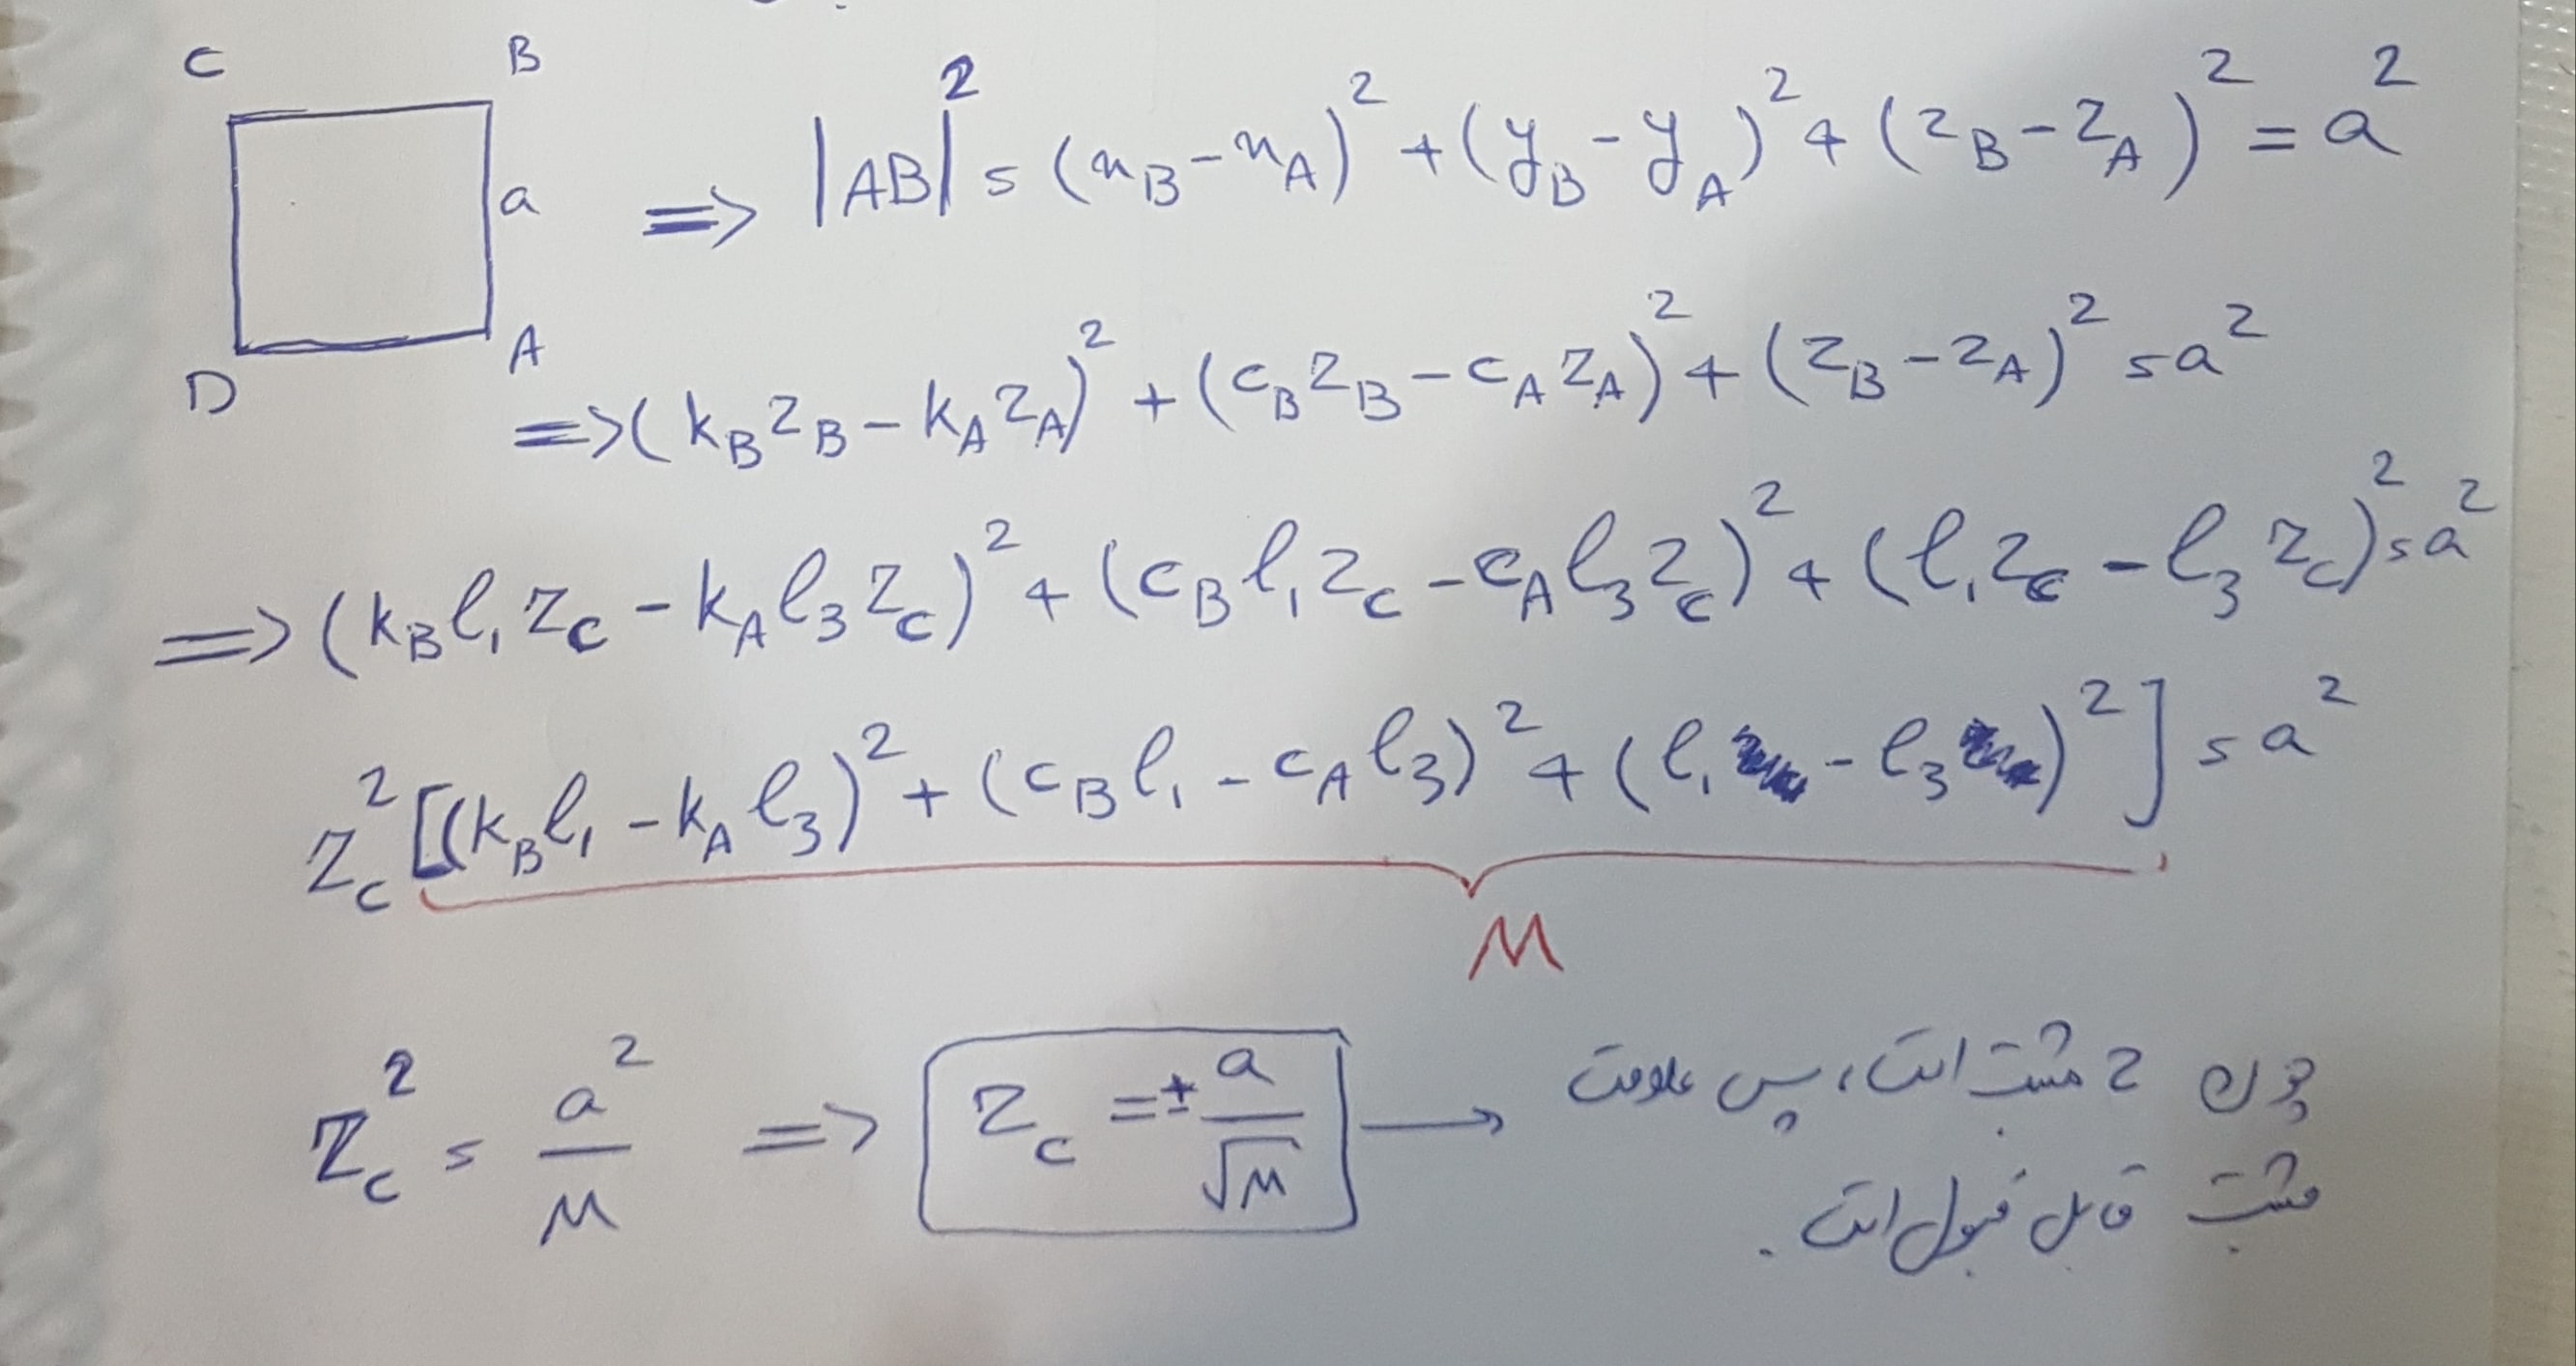 C B
a
D A
=> |AB|² = (x_B - x_A)² + (y_B - y_A)² + (z_B - z_A)² = a²
=> (k_B z_B - k_A z_A)² + (c_B z_B - c_A z_A)² + (z_B - z_A)² = a²
=> (k_B l₁ z_C - k_A l₃ z_C)² + (c_B l₁ z_C - c_A l₃ z_C)² + (l₁ z_C - l₃ z_C)² = a²
z_C² [(k_B l₁ - k_A l₃)² + (c_B l₁ - c_A l₃)² + (l₁ - l₃)²] = a²
M
z_C² = a²/M => z_C = ± a/√M → چون z مثبت است، پس علامت
مثبت قابل قبول است.